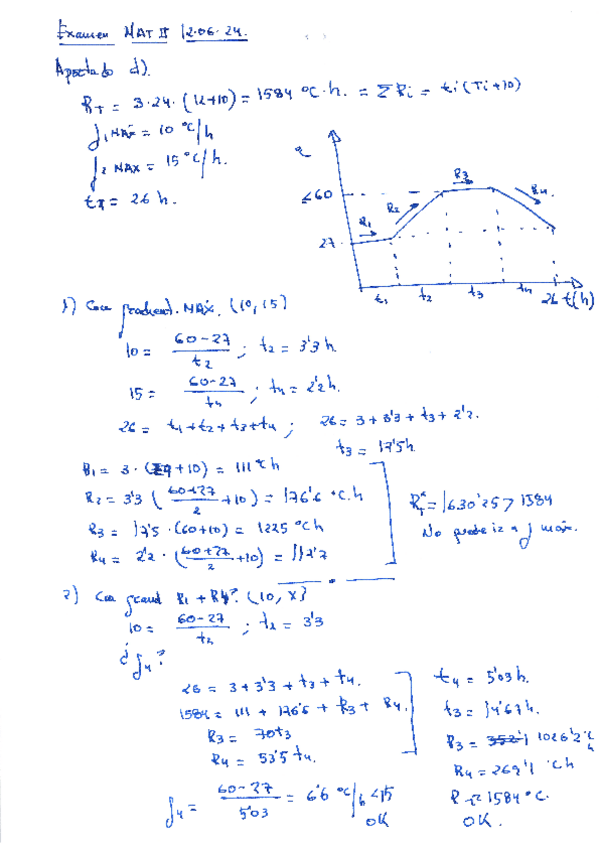 Examen MAT II 12.06.24.
Apartado d).
RT = 3·24·(12+10) = 1584 ºC·h. = ΣRi = ti(Ti+10)
j1 MÁX = 10 ºC/h
j2 MAX = 15 ºC/h.
tT = 26 h.
≤60
R3
R4
R2
R1
27
t1 t2 t3 t4 26 t(h)
1) Con gradient. MÁX. (10, 15)
10 = 60-27 / t2 ; t2 = 3'3 h.
15 = 60-27 / t4 ; t4 = 2'2 h.
26 = t1+t2+t3+t4 ; 26 = 3 + 3'3 + t3 + 2'2.
t3 = 17'5 h
R1 = 3·(27+10) = 111 ºC h
R2 = 3'3 (60+27 / 2 + 10) = 176'6 ºC.h
R3 = 17'5·(60+10) = 1225 ºC h
R4 = 2'2·(60+27 / 2 + 10) = 117'7
RT* = 1630'25 > 1584
No puede ir a j máx.
2) Con grad R1 + R4? (10, X)
10 = 60-27 / t2 ; t2 = 3'3
¿j4?
26 = 3 + 3'3 + t3 + t4.
1584 = 111 + 176'6 + R3 + R4.
R3 = 70t3
R4 = 53'5 t4.
t4 = 5'03 h.
t3 = 14'67 h.
R3 = 1026'2 ºC h
R4 = 269'1 ºC h
R ≈ 1584 ºC.
OK.
j4 = 60-27 / 5'03 = 6'6 ºC/h < 15
OK